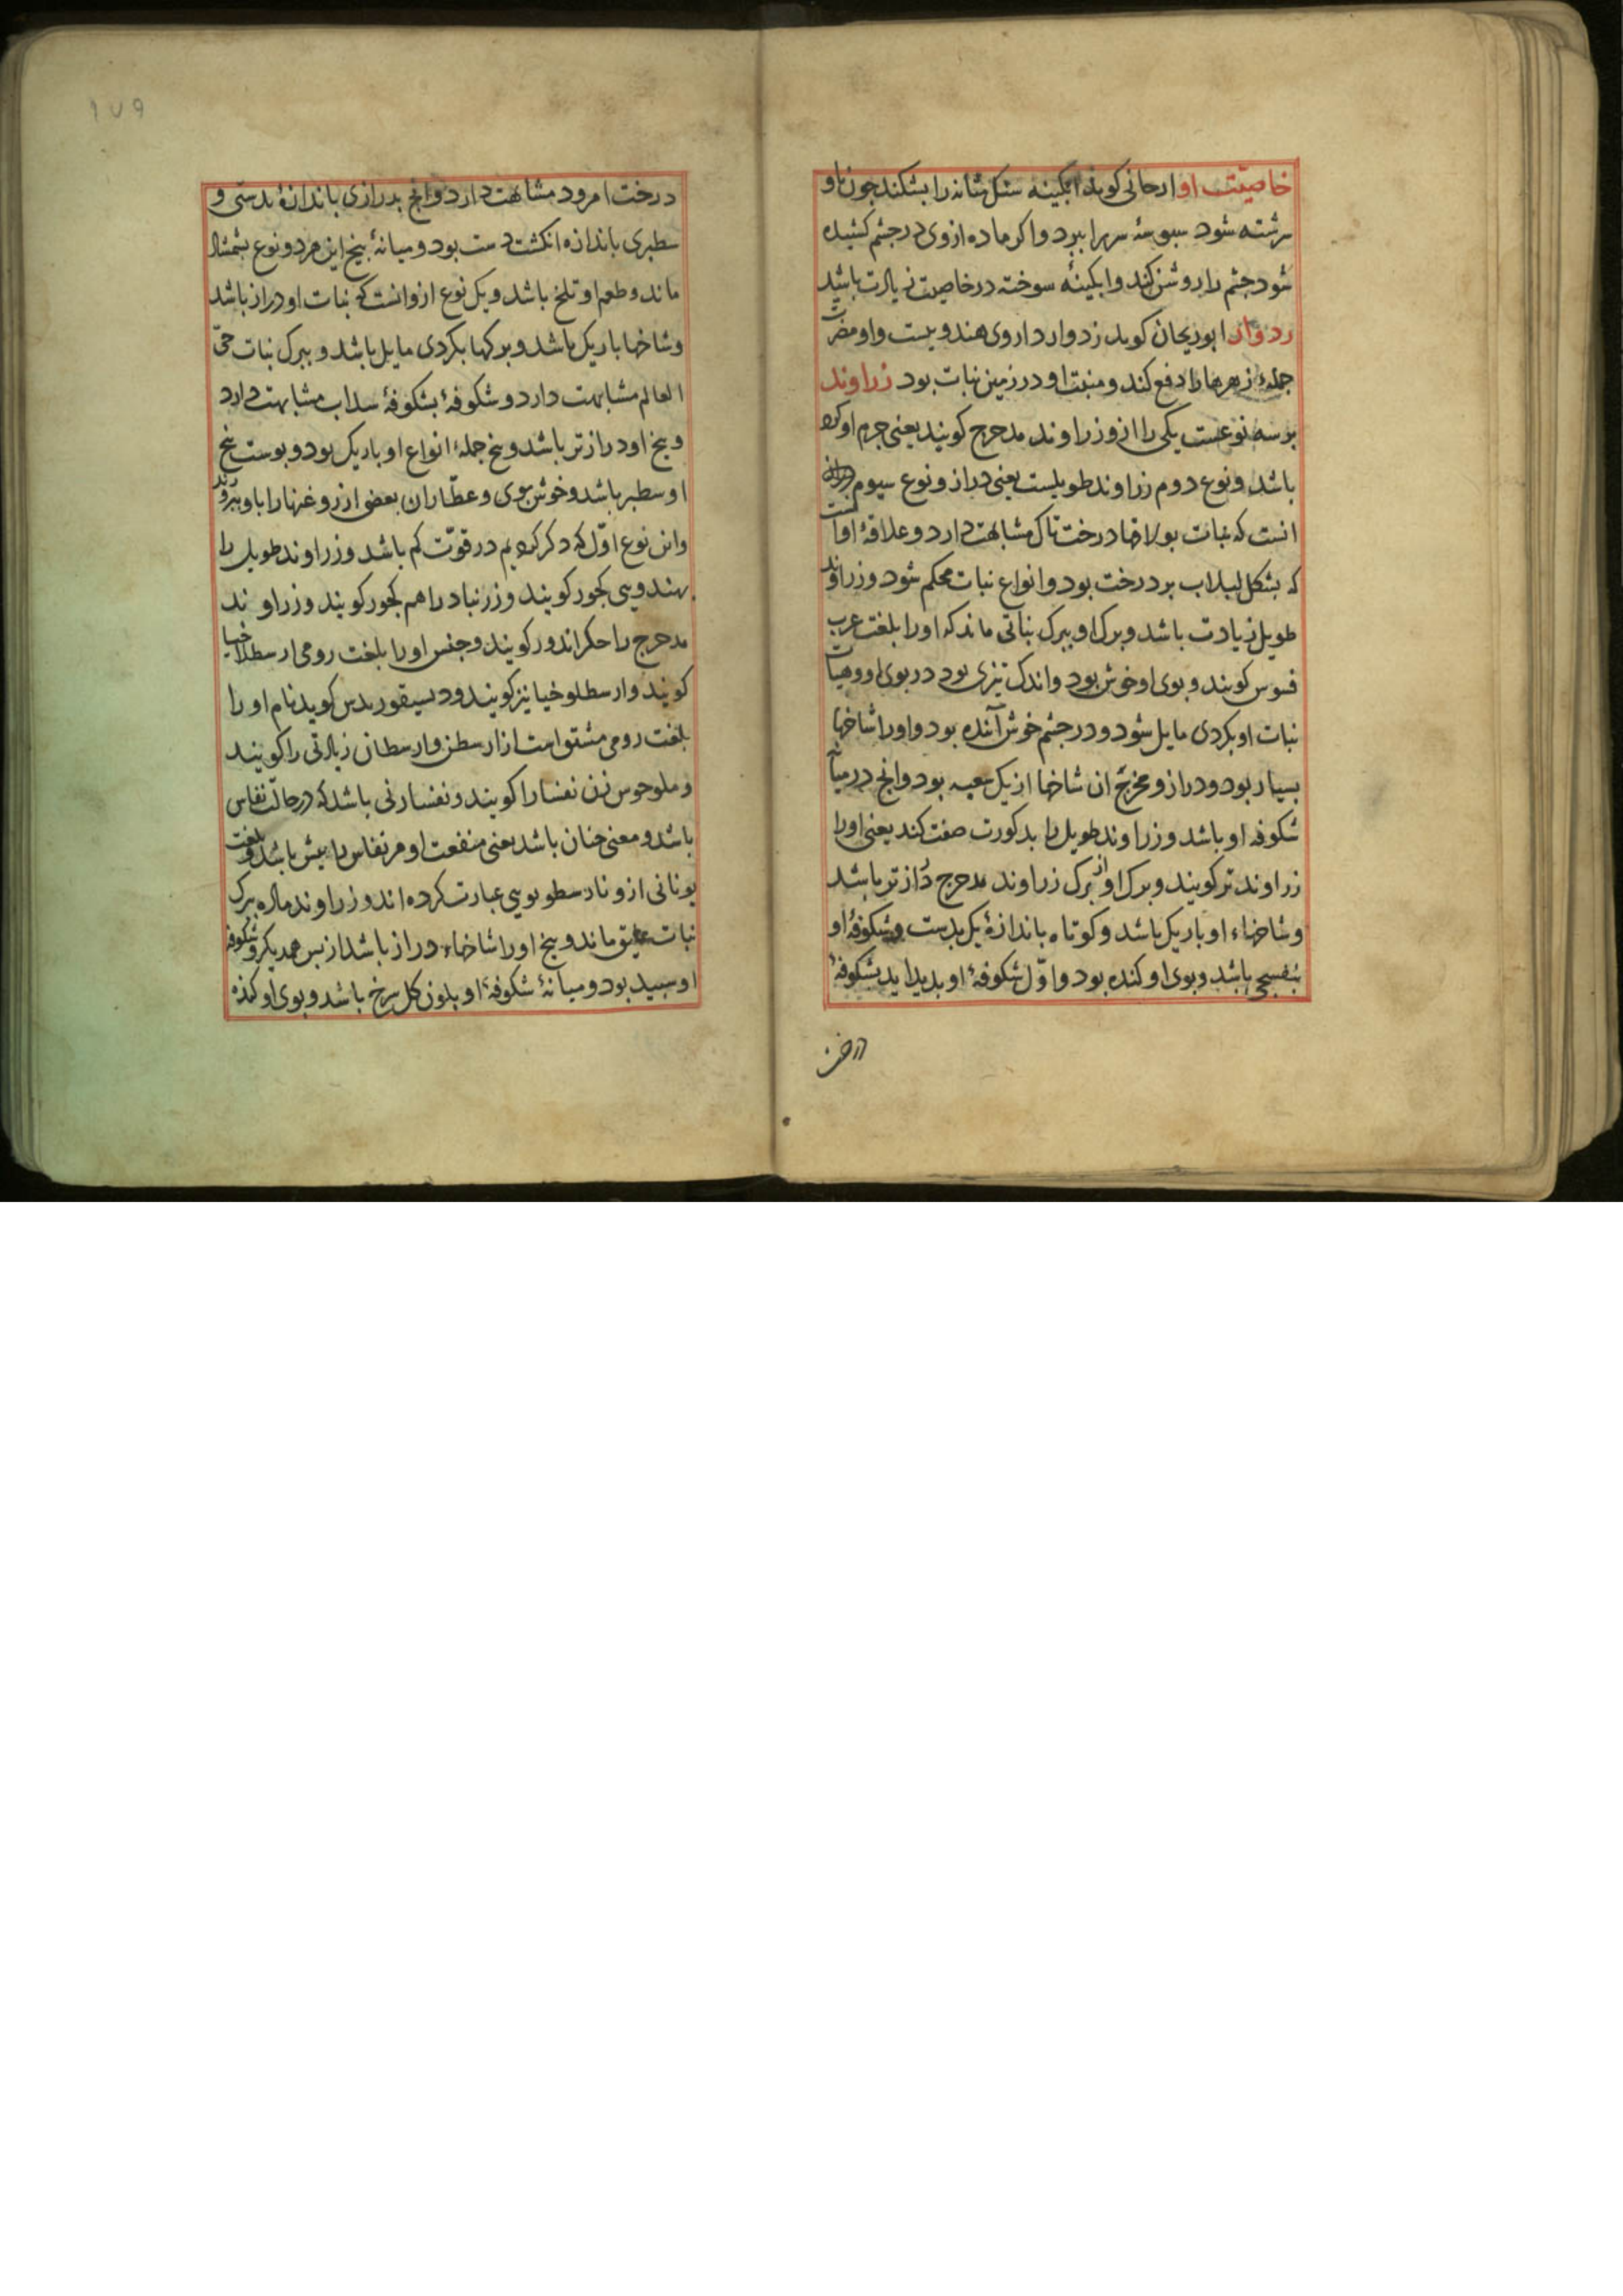 خاصیّت او ارجانی کوید ابکینه سنک مثانه را بشکند جون باو
سرشته شود سبوسهٔ سر را ببرد و اکر ماده از وی در جشم کشیده
شود جشم را روشن کند و ابکینهٔ سوخته در خاصیت زیادت باشد
زدوار ابوریحان کوید زدوار داروی هندویست و او مضرت
جملهٔ زهرها را دفع کند و منبت او در زمین نبات بود زراوند
بر سه نوعست یکی را از و زراوند مدحرج کویند یعنی جرم او کرد
باشد و نوع دوم زراوند طویلست یعنی دراز و نوع سیوم
انست که نبات بود درخت تاک مشابهت دارد و علاقهٔ او انست
که بشکل لبلاب بر درخت بود و انواع نبات محکم شود و زراوند
طویل زیادت باشد و برک او ببرک نباتی ماند که اورا بلغت عرب
قسوس کویند و بوی او خوش بود و اندک تیزی بود در بوی او و هیات
نبات او بکردی مایل شود و در جشم خوش آینده بود و اورا شاخها
بسیار بود و دراز و مخرج ان شاخها از یک شعبه بود و انج در میان
شکوفه او باشد و زراوند طویل را بذکورت صفت کند یعنی اورا
زراوند نر کویند و برک او از برک زراوند مدحرج دراز تر باشد
و شاخهاء او باریک باشد و کوتاه باندازهٔ یک بدست و شکوفهٔ او
بنفسجی باشد و بوی او کنده بود و اوّل شکوفهٔ او بدید اید بشکوفهٔ
درخت
۱۷۹
درخت امرود مشابهت دارد و انج بدرازی باندازهٔ بدستی و
سطبری باندازه انکشت دست بود و میانهٔ بیخ این هر دو نوع بشمشاد
ماند و طعم او تلخ باشد و یک نوع ازو انست که نبات او دراز باشد
و شاخها باریک باشد و برکها بکردی مایل باشد و ببرک نبات حیّ
العالم مشابهت دارد و شکوفهٔ بشکوفهٔ سداب مشابهت دارد
و بیخ او دراز تر باشد و بیخ جملهٔ انواع او باریک بود و بوست بیخ
او سطبر باشد و خوش بوی و عطّاران بعضی از روغنها را باو بپرورند
و این نوع اوّل که ذکر کردیم در قوّت کم باشد و زراوند طویل را
بهندوی کجور کویند و زرنباد را هم کجور کویند و زراوند
مدحرج را حکراندور کویند و جنس اورا بلغت رومی ارسطلاخیا
کویند و ارسطلوخیا نیز کویند و دیسیقوریدس کوید نام اورا
بلغت رومی مشتق است از ارسطن و ارسطان زیادتی را کویند
و ملوحوس زن نفسا را کویند و نفسا زنی باشد که در حالت نفاس
باشد و معنی جنان باشد یعنی منفعت او مر نفاس را بیش باشد و بلغت
یونانی ازو نارسطوبوسی عبارت کرده اند و زراوند ماده ببرک
نبات علیق ماند و بیخ اورا شاخهاء دراز باشد از بس همدیکر و شکوفهٔ
او سبید بود و میانهٔ شکوفهٔ او بلون کل سرخ باشد و بوی او کنده